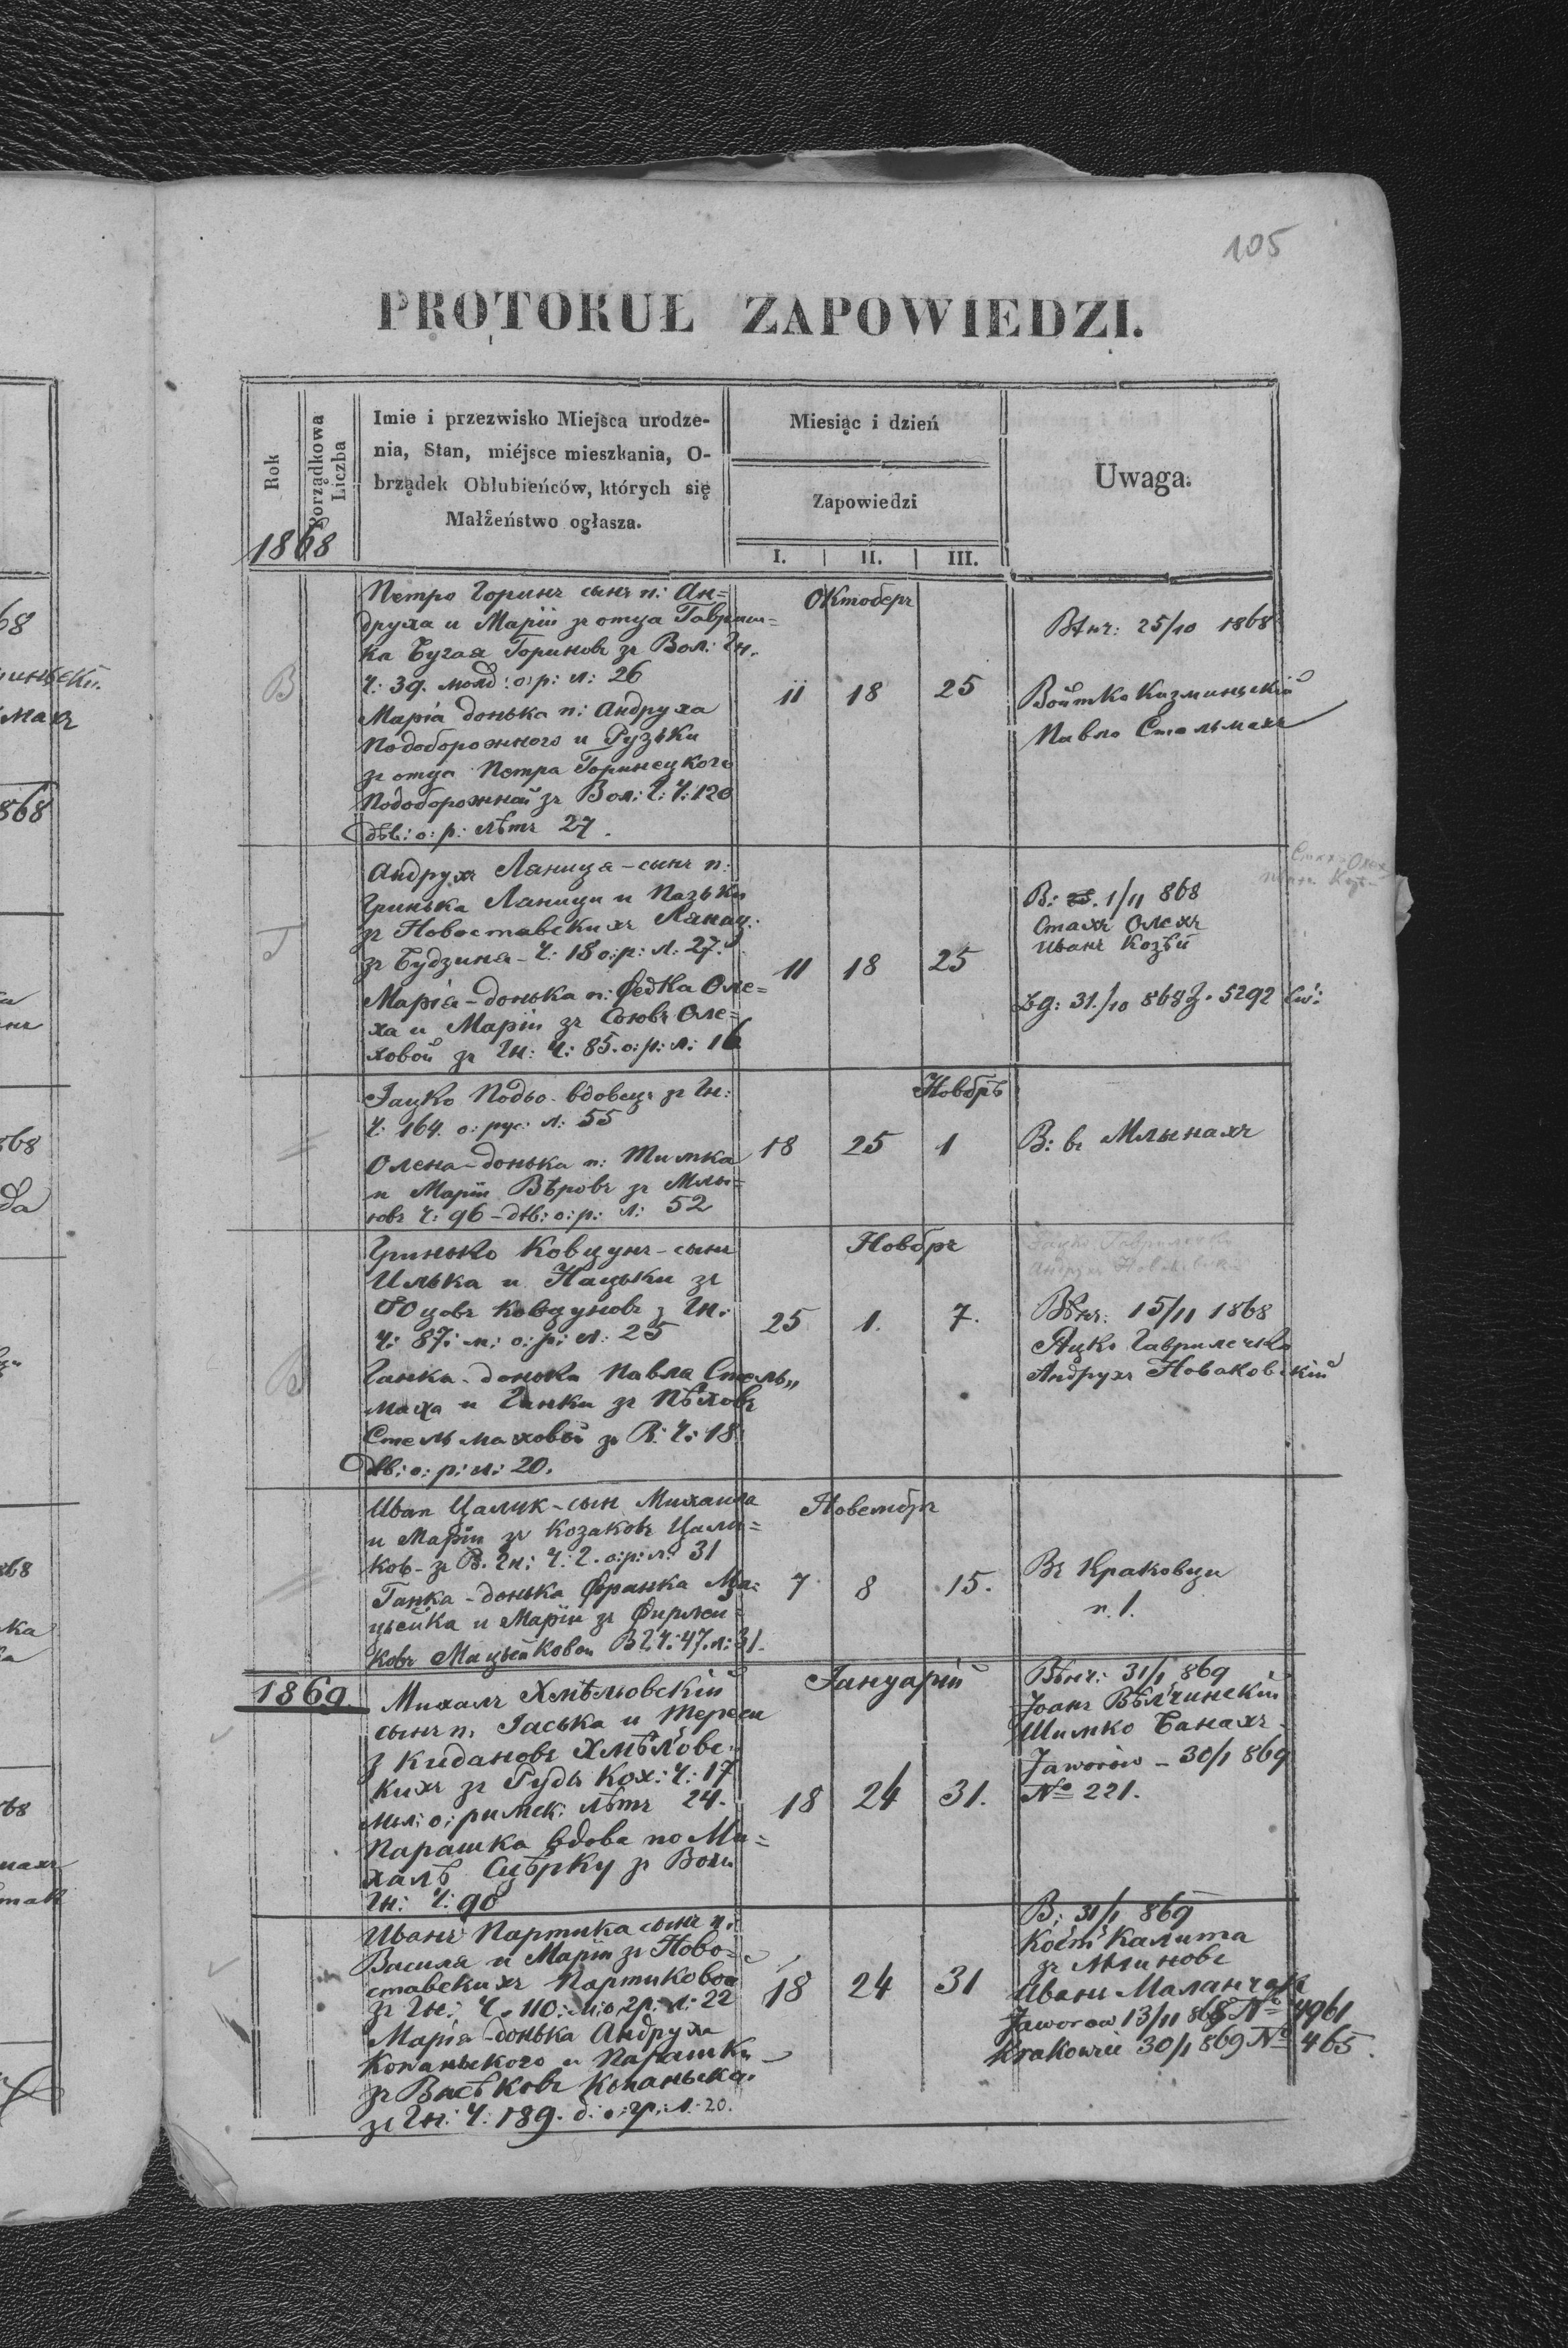 105
PROTOKUŁ ZAPOWIEDZI.
Rok
Porządkowa Liczba
Imie i przezwisko Miejsca urodze-
nia, Stan, miéjsce mieszkania, O-
brządek Oblubieńców, których się
Małżeństwo ogłasza.
Miesiąc i dzień
Zapowiedzi
I. II. III.
Uwaga.
1868
Петро Горинъ сынъ п: Ан=
друха и Маріи зъ отца
ка Бугая Гориновъ зъ Вол: Гн.
Ч: 39. молод: о: р: л: 26
Марія донька п: Андруха
Пододорожного и Рузьки
зъ отца Петра Горинецкого
Пододорожнай зъ Вол: Г: Ч: 120
дѣв: о: р: лѣтъ 27.
В
Октоберъ
11 18 25
Вѣнч: 25/10 1868
Войтко Казминьскій
Павло Стельмахъ
Андрухъ Ланица - сынъ п:
Гринька Ланици и Пазьки
зъ Новоставскихъ Ланац:
зъ Будзина - Ч: 18 о: р: л: 27.
Марія - донька п: Федка Оле=
ха и Маріи зъ Соювъ Оле=
ховой зъ Гн: Ч: 85. о: р: л: 16
11 18 25
В: 1/11 868
Стахъ Олехъ
Иванъ Козѣй
31/10 868 5292
Яцко Подьо - вдовецъ зъ Гн:
Ч: 164. о: рус: л: 55
Олена - донька п: Тимка
и Маріи Вѣровъ зъ Млы=
новъ Ч: 96 - дѣв: о: р: л: 52
Новбрѣ
18 25 1
В: въ Млынахъ
Гринько Ковцунъ - сынъ
Илька и Нацьки зъ
Ковцуновъ з Гн:
Ч: 87: м: о: р: л: 25
Ганка - донька Павла Стель„
маха и Ганки зъ
Стельмаховой зъ В: Ч: 18
дѣв: о: р: л: 20.
В
Новбръ
25 1. 7.
Вѣнч: 15/11 1868
Яцко Гаврилечко
Андрухъ Новаковскій
Иван Цалик - сын Михаила
и Маріи зъ Козаковъ Цали=
ков - зъ В. Гн: Ч: 2. о: р: л: 31
Ганка - донька Франка Ма=
цьейка и Маріи зъ Фирлей=
ковъ Мацьейковой В Г: Ч: 47. л: 31.
Новембръ
7 8 15.
Въ Краковци
п. 1.
1869.
Михалъ Хмѣлювскій
сынъ п: Яська и Тереси
з Кидановъ Хмѣловс
кихъ зъ Руды Кох: Ч: 17
мл: о: римск: лѣтъ 24.
Парашка вдова по Ми=
халѣ Сцѣрку зъ Воли
Гн: Ч: 90
Януарій
18 24 31.
Вѣнч: 31/1 869
Іоанъ Вѣлчинскій
Шимко Банахъ
Jaworów - 30/1 869
№ 221.
Иванъ Партика сынъ п:
Василя и Маріи зъ Ново=
ставскихъ Партиковой
зъ Гн: Ч. 110: м: о: гр: л: 22
Марія - донька Андруха
Копаньского и Парашки
зъ Внѣсковъ Копаньска.
зъ Гн: Ч: 189. д: о: гр: л: 20.
18 24 31
В: 31/1 869
Костѣ Калита
зъ Млиновъ
Иванъ Маланчакъ
Jaworow 13/11 868 № 4961
Krakowiec 30/1 869 № 465.